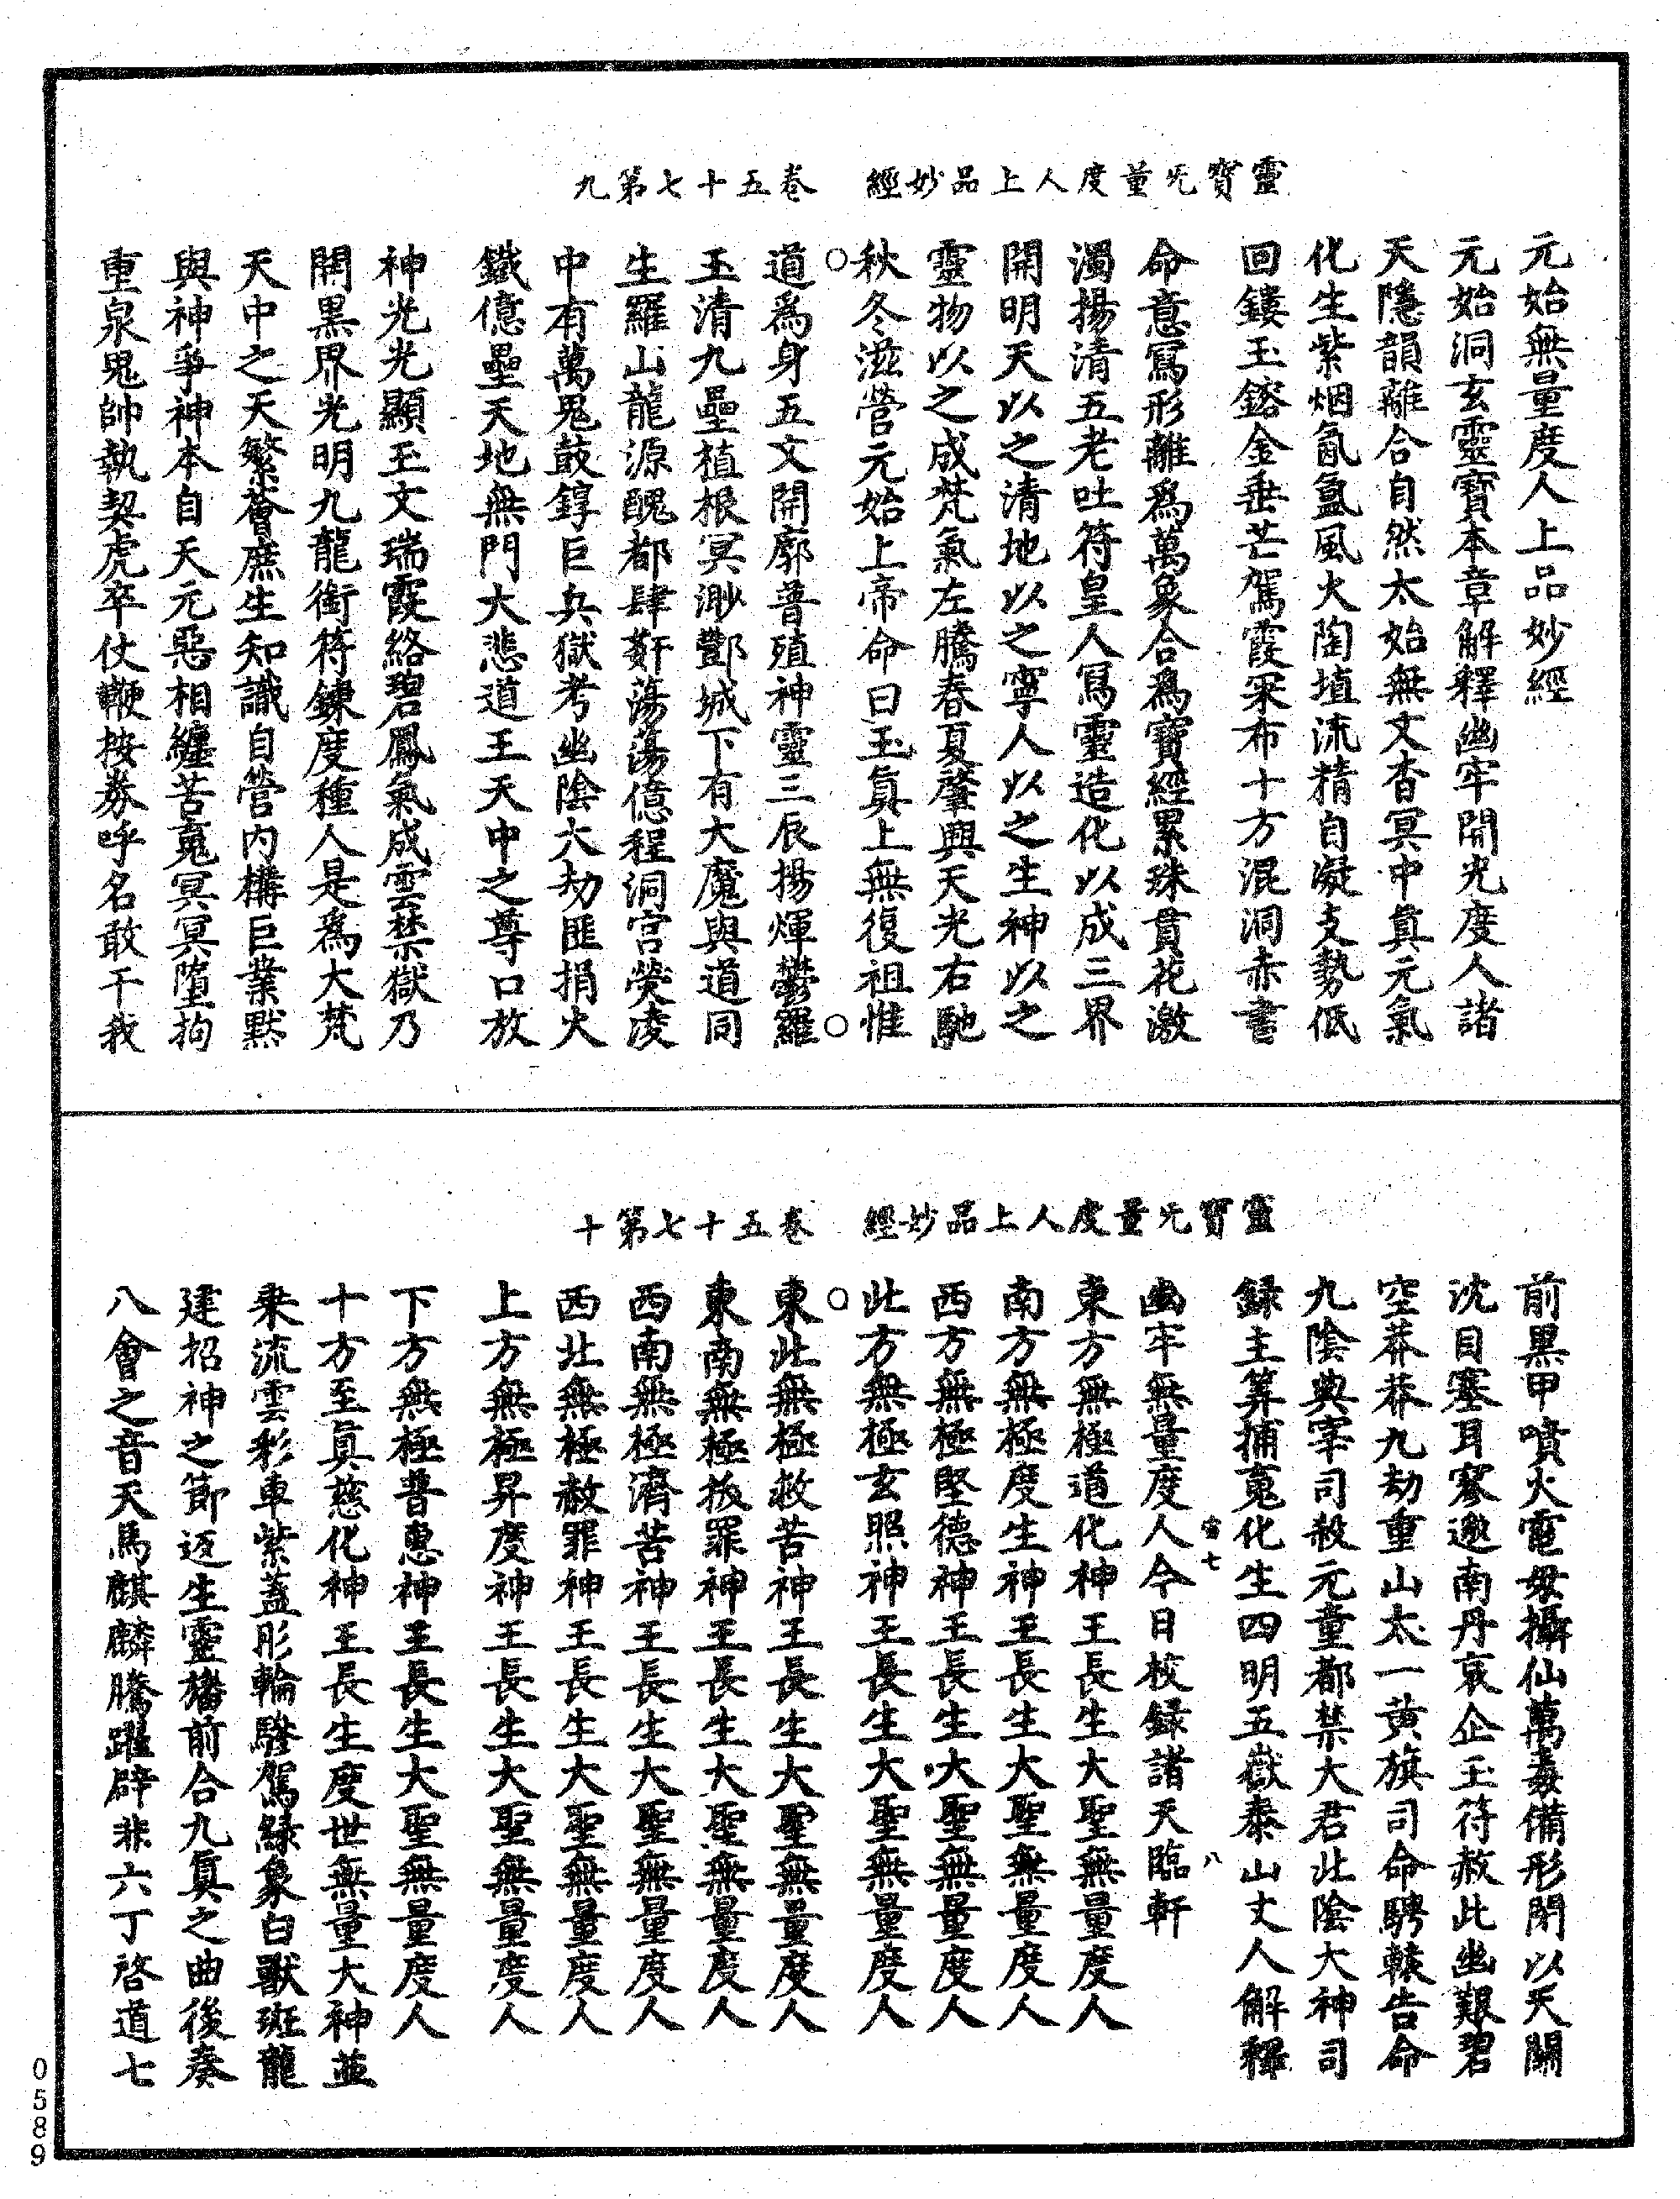 靈寶无量度人上品妙經　卷五十七第九
元始無量度人上品妙經
元始洞玄靈寶本章解釋幽牢開光度人諸
天隱韻離合自然太始無文杳冥中真元氣
化生紫烟氤氳風火陶埴流精自凝支勢低
回鏤玉鎔金垂芒駕霞罙布十方混洞赤書
命意寫形離為萬象合為寶經累珠貫花激
濁揚清五老吐符皇人寫靈造化以成三界
開明天以之清地以之寧人以之生神以之
靈物以之成梵氣左騰春夏肇興天光右馳
秋冬滋營元始上帝命曰玉真上無復祖惟
道為身五文開廓普殖神靈三辰揚煇鬱羅
玉清九壘植根冥渺酆城下有大魔與道同
生羅山龍源醜都肆姧蕩蕩億程洞宮熒凌
中有萬鬼鼓錞巨兵獄考幽陰六劫匪捐火
鐵億壘天地無門大悲道王天中之尊口放
神光光顯玉文瑞霞絡碧鳳氣成雲禁獄乃
開黑界光明九龍銜符鍊度種人是為大梵
天中之天繁薈庶生知識自營內構巨業默
與神爭神本自天元惡相纏苦䰟冥冥墮拘
重泉鬼帥執契虎卒仗鞭按券呼名敢干我
靈寶无量度人上品妙經　卷五十七第十
前黑甲噴火電毋攝仙萬毒備形閉以天關
沈目塞耳寥邈南丹哀企玉符赦此幽艱碧
空莽莽九劫重山太一黃旗司命騁轅告命
九陰典宰司殺元童都禁大君北陰大神司
録主筭捕䰟化生四明五嶽泰山丈人解釋
宙七　八
幽牢無量度人今日校録諸天臨軒
東方無極道化神王長生大聖無量度人
南方無極度生神王長生大聖無量度人
西方無極堅德神王長生大聖無量度人
北方無極玄照神王長生大聖無量度人
東北無極救苦神王長生大聖無量度人
東南無極拔罪神王長生大聖無量度人
西南無極濟苦神王長生大聖無量度人
西北無極赦罪神王長生大聖無量度人
上方無極昇度神王長生大聖無量度人
下方無極普惠神王長生大聖無量度人
十方至真慈化神王長生度世無量大神並
乘流雲彩車紫蓋彤輪驂駕緑象白獸斑龍
建招神之節返生靈旛前合九真之曲後奏
八會之音天馬麒麟騰躍辟非六丁啓道七
0589